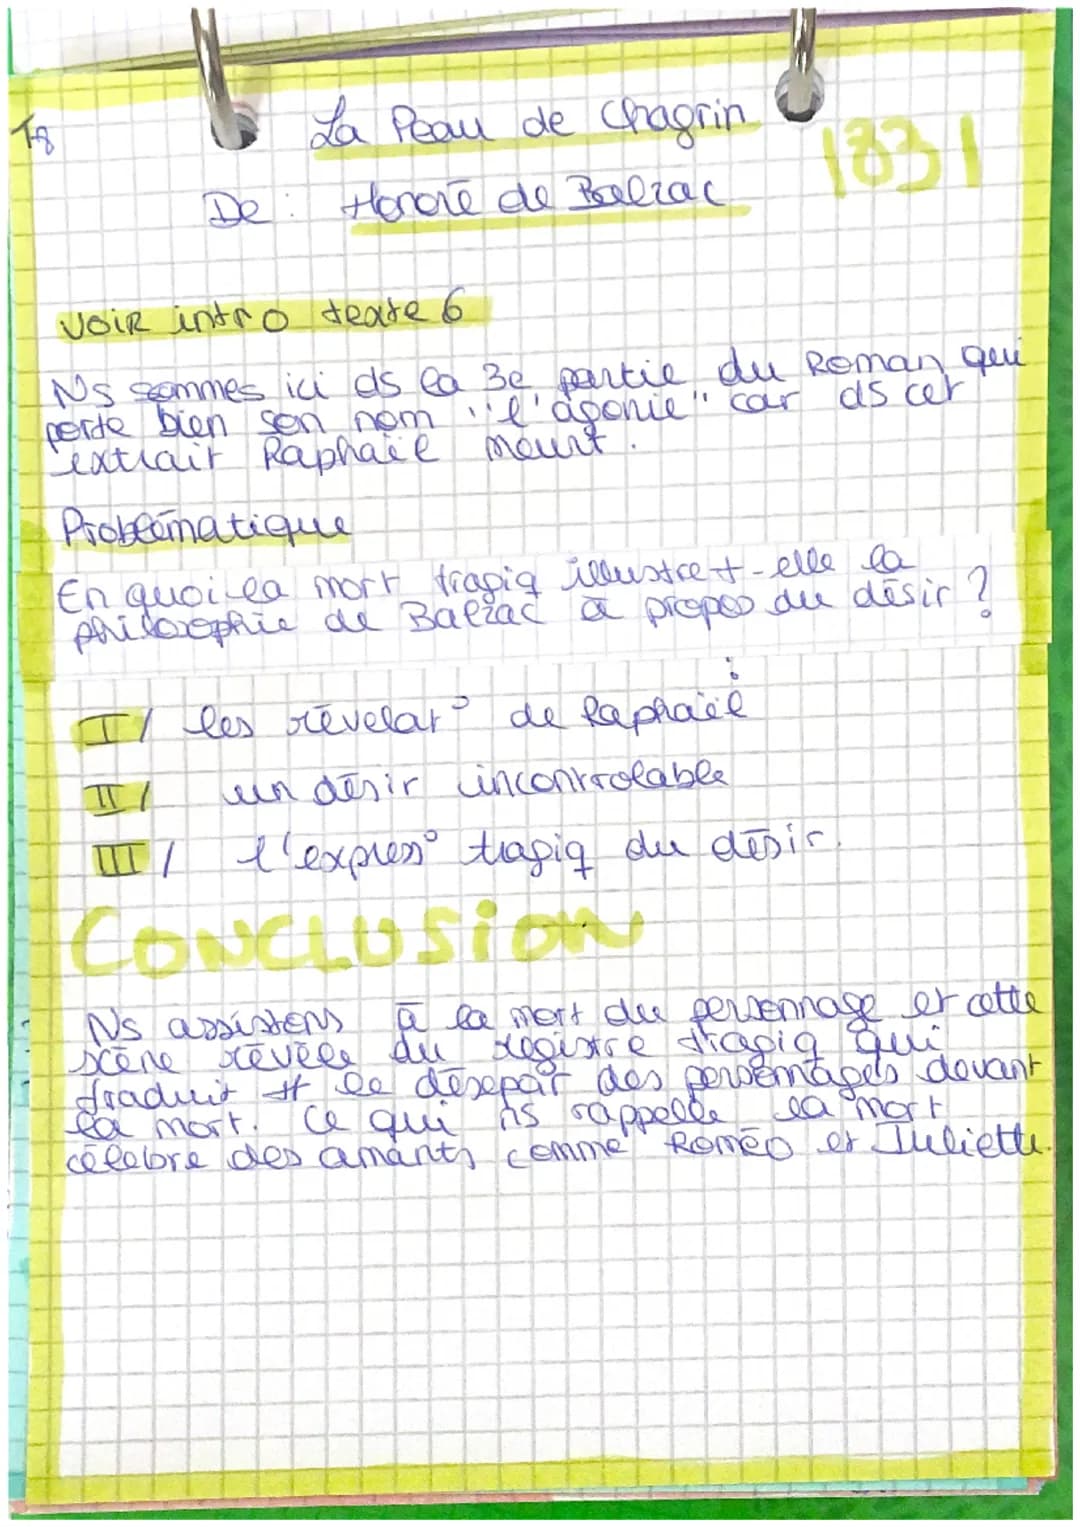 T8
La Peau de Chagrin
1831
De : Honoré de Balzac
VOIR intro texte 6
Ns sommes ici ds la 3e partie du Roman qui
porte bien son nom "l'agonie" car ds cet
extrait Raphaël meurt.
Problématique
En quoi la mort tragiq illustre t-elle la
philosophie de Balzac à propos du désir ?
I / les révelat° de Raphaël
II / un désir incontrolable
III / l'express° tragiq du désir.
CONCLUSION
Ns assistons à la mort du personnage et cette
scène révèle du registre tragiq qui
traduit tt le désepoir des personnages devant
la mort. Ce qui ns rappelle la mort
célèbre des amants comme Roméo et Juliette.